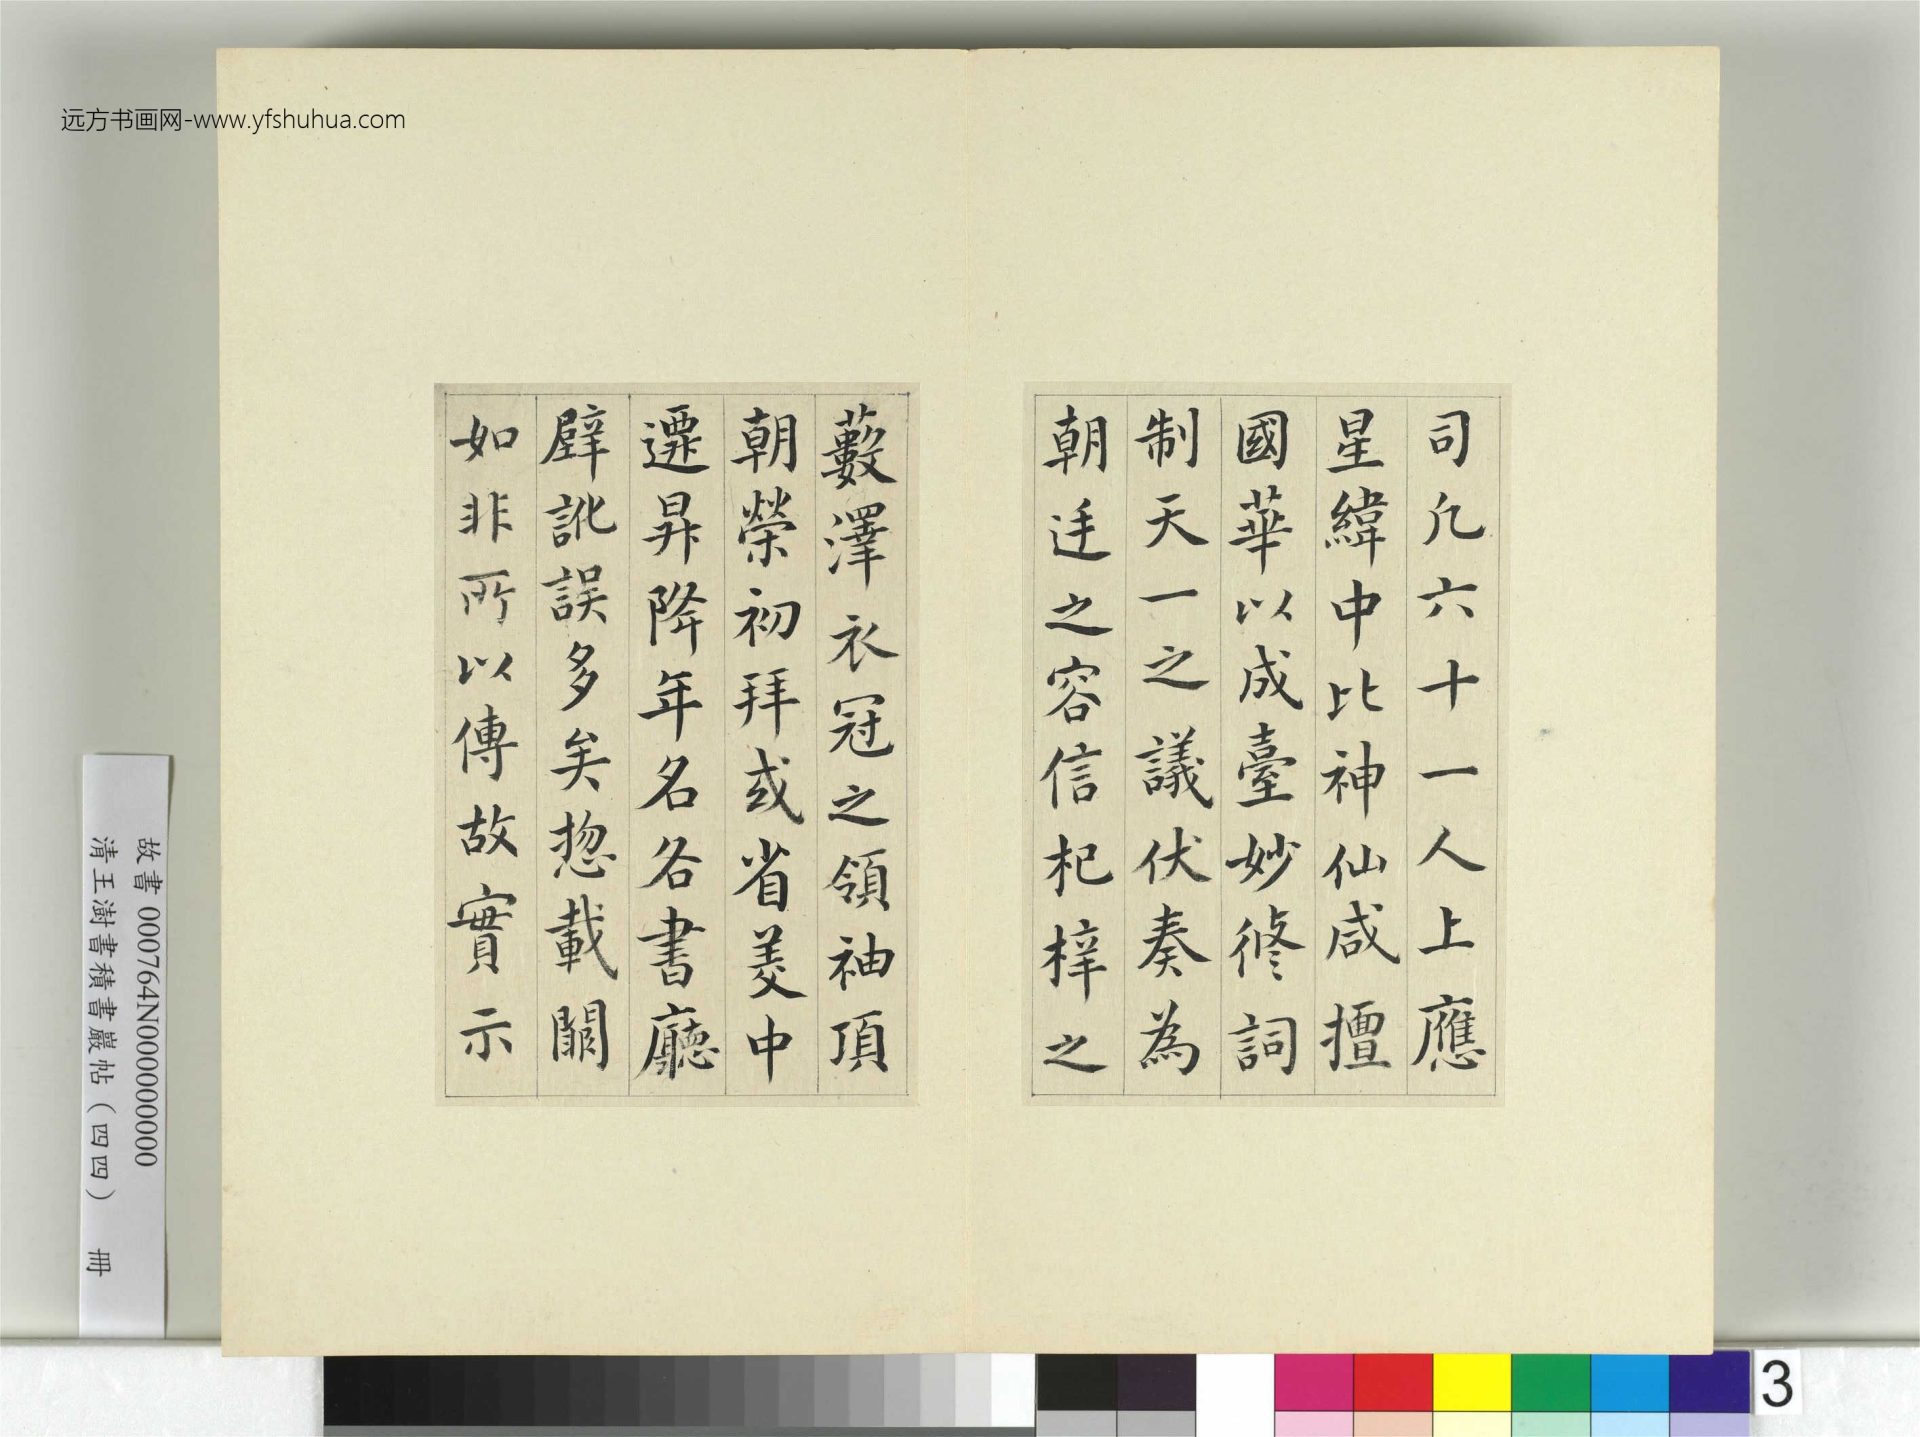 远方书画网-www.yfshuhua.com
司凡六十一人上應
星緯中比神仙咸擅
國華以成臺妙修詞
制天一之議伏奏為
朝廷之容信杞梓之
藪澤衣冠之領袖頂
朝榮初拜或省美中
遷昇降年名各書廳
壁訛誤多矣揔載闕
如非所以傳故實示
故書000764N000000000
清王澍書積書巖帖(四四) 冊
3